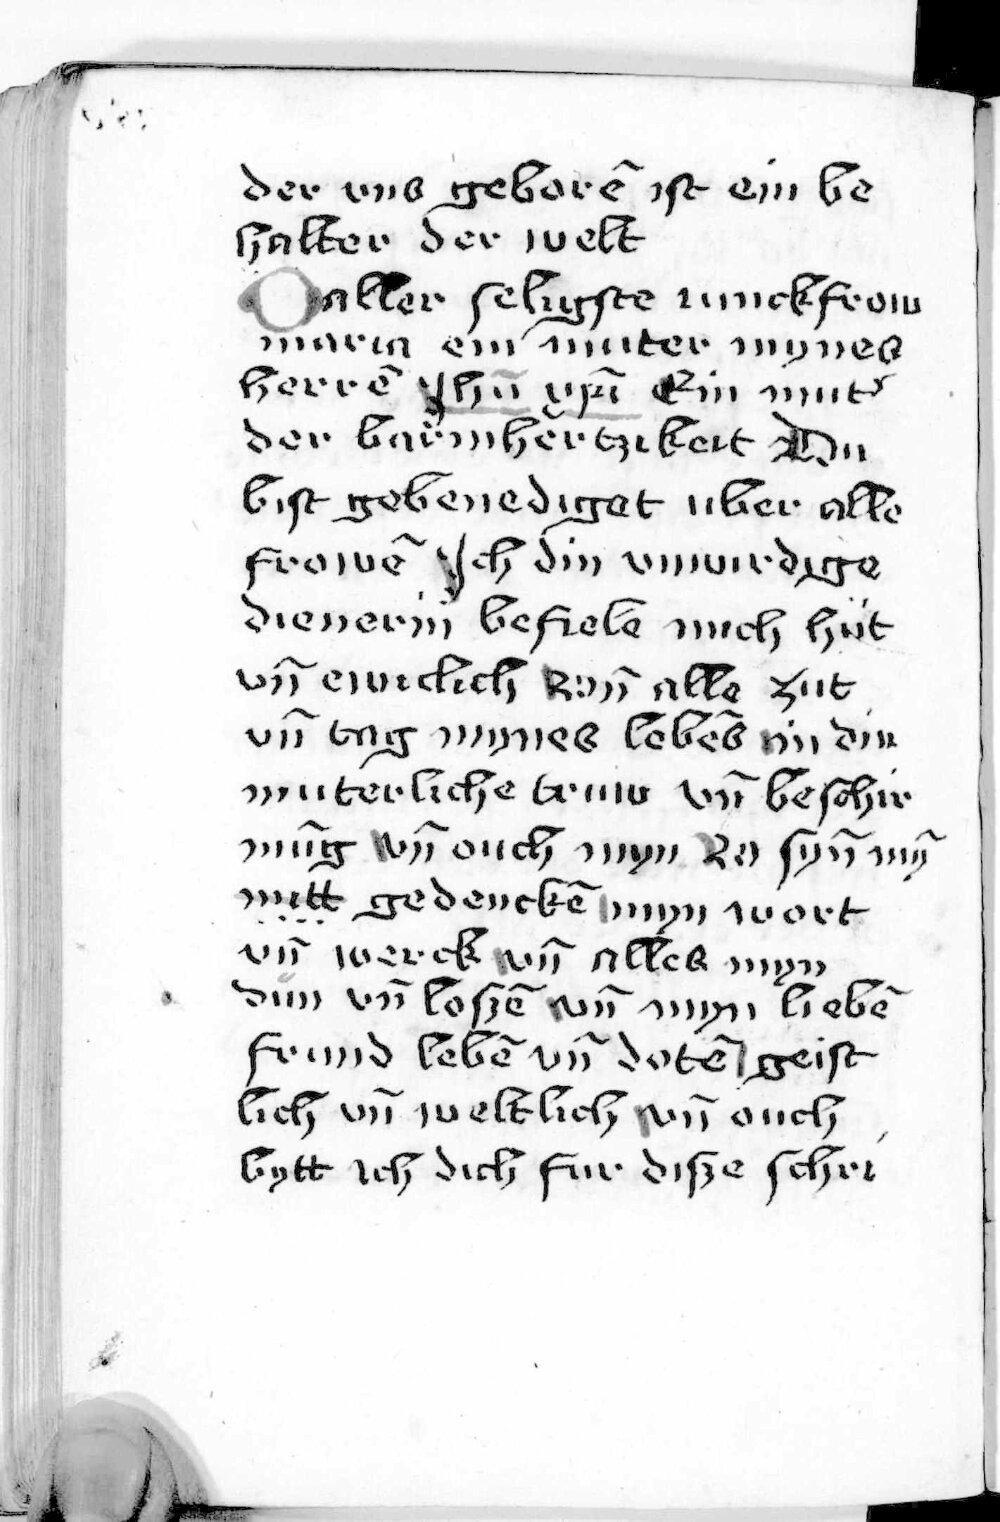 der vns geborē ist ein be
halter der welt
O aller seligste iunckfrow
maria ein muter mynes
herrē Jhū xpī Ein mut͛
der barmhertzikeit Du
bist gebenediget uber alle
frowē Jch din vnwirdige
dienerin befiele mich hüt
vn̄ ewiclich vn̄ alle zit
vn̄ tag mynes lebēs in din
muterliche truw vn̄ beschir
mūg vn̄ ouch myn syn̄ mȳ
mitt gedenckē myn wort
vn̄ werck vn̄ alles myn
dün vn̄ loszē vn̄ myn liebē
frund lebē vn̄ dotē geist
lich vn̄ weltlich vn̄ ouch
bytt ich dich fur disze schri